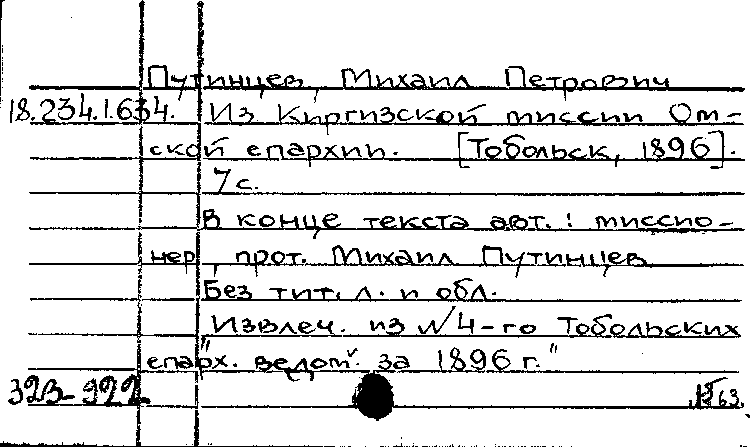 Путинцев, Михаил Петрович
18.234.1.634. Из Киргизской миссии Ом-
ской епархии. [Тобольск, 1896].
7 с.
В конце текста авт.: миссио-
нер, прот. Михаил Путинцев
Без тит. л. и обл.
"Извлеч. из №4-го Тобольских
епарх. ведом. за 1896 г."
323-922